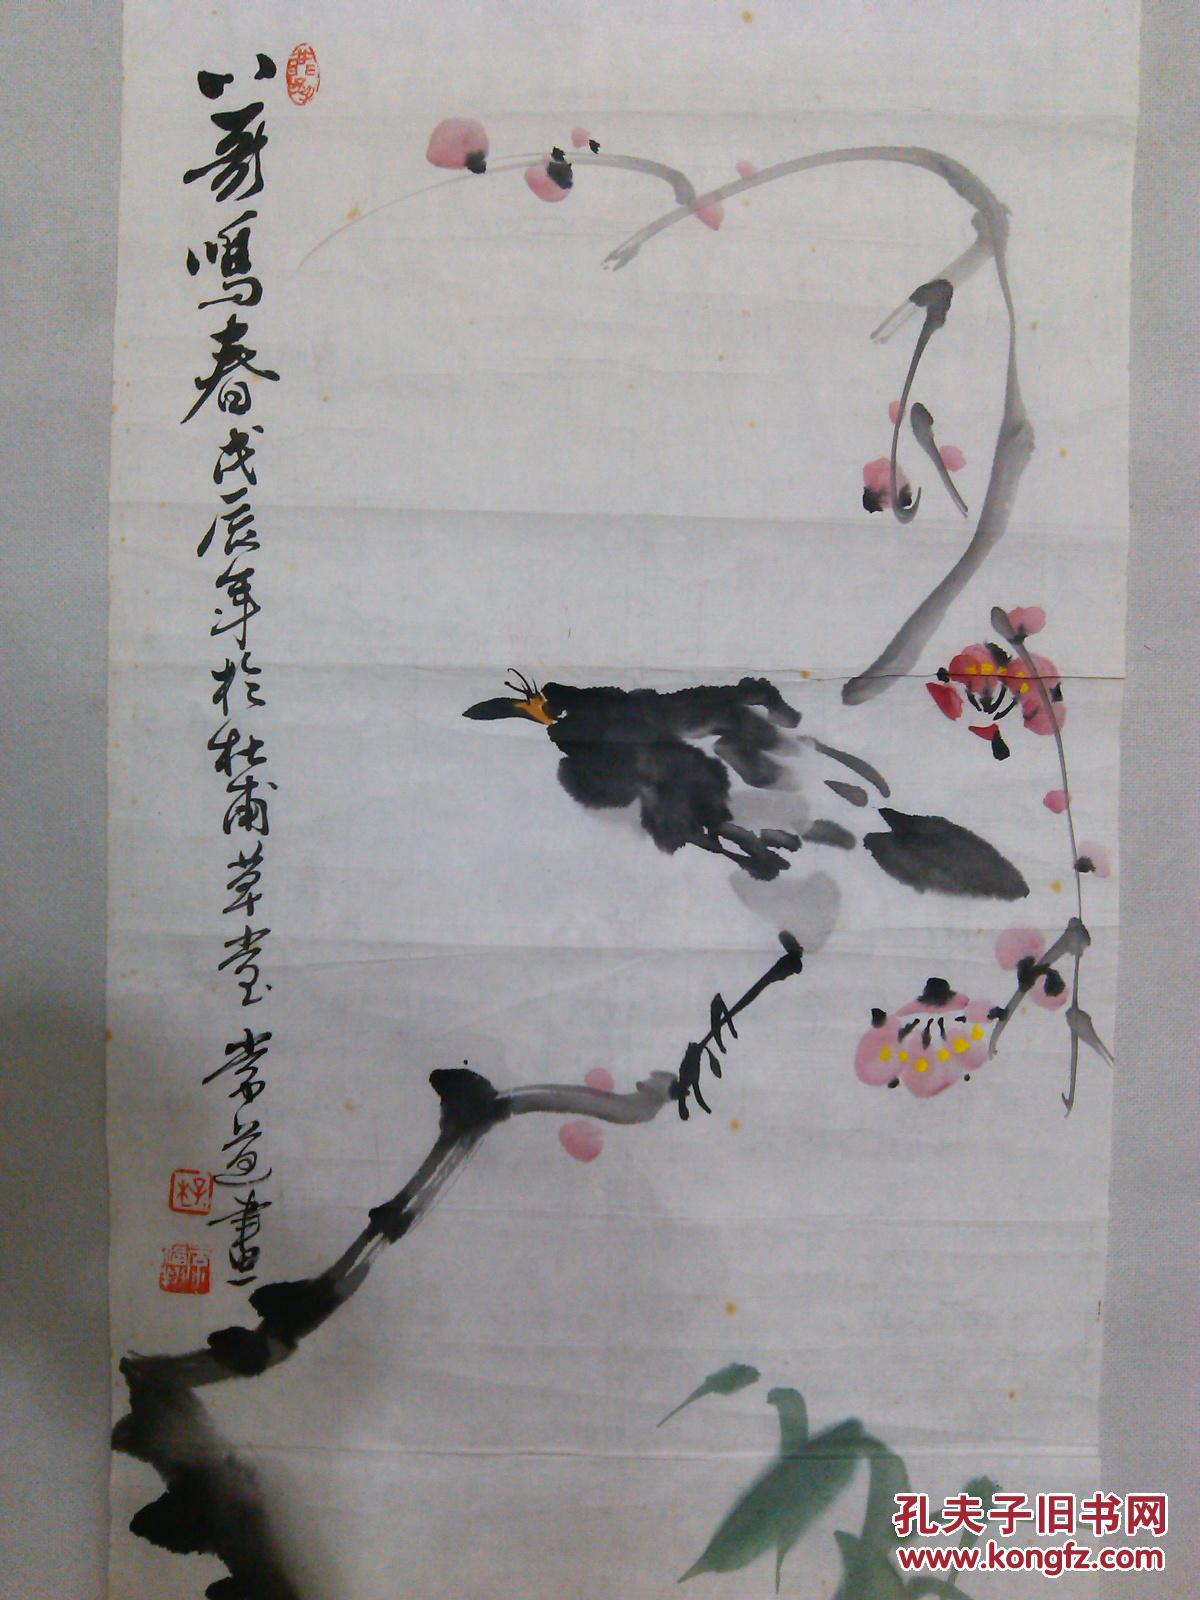 八哥鸣春戊辰年於杜甫草堂常道畫
孔夫子旧书网
www.kongfz.com